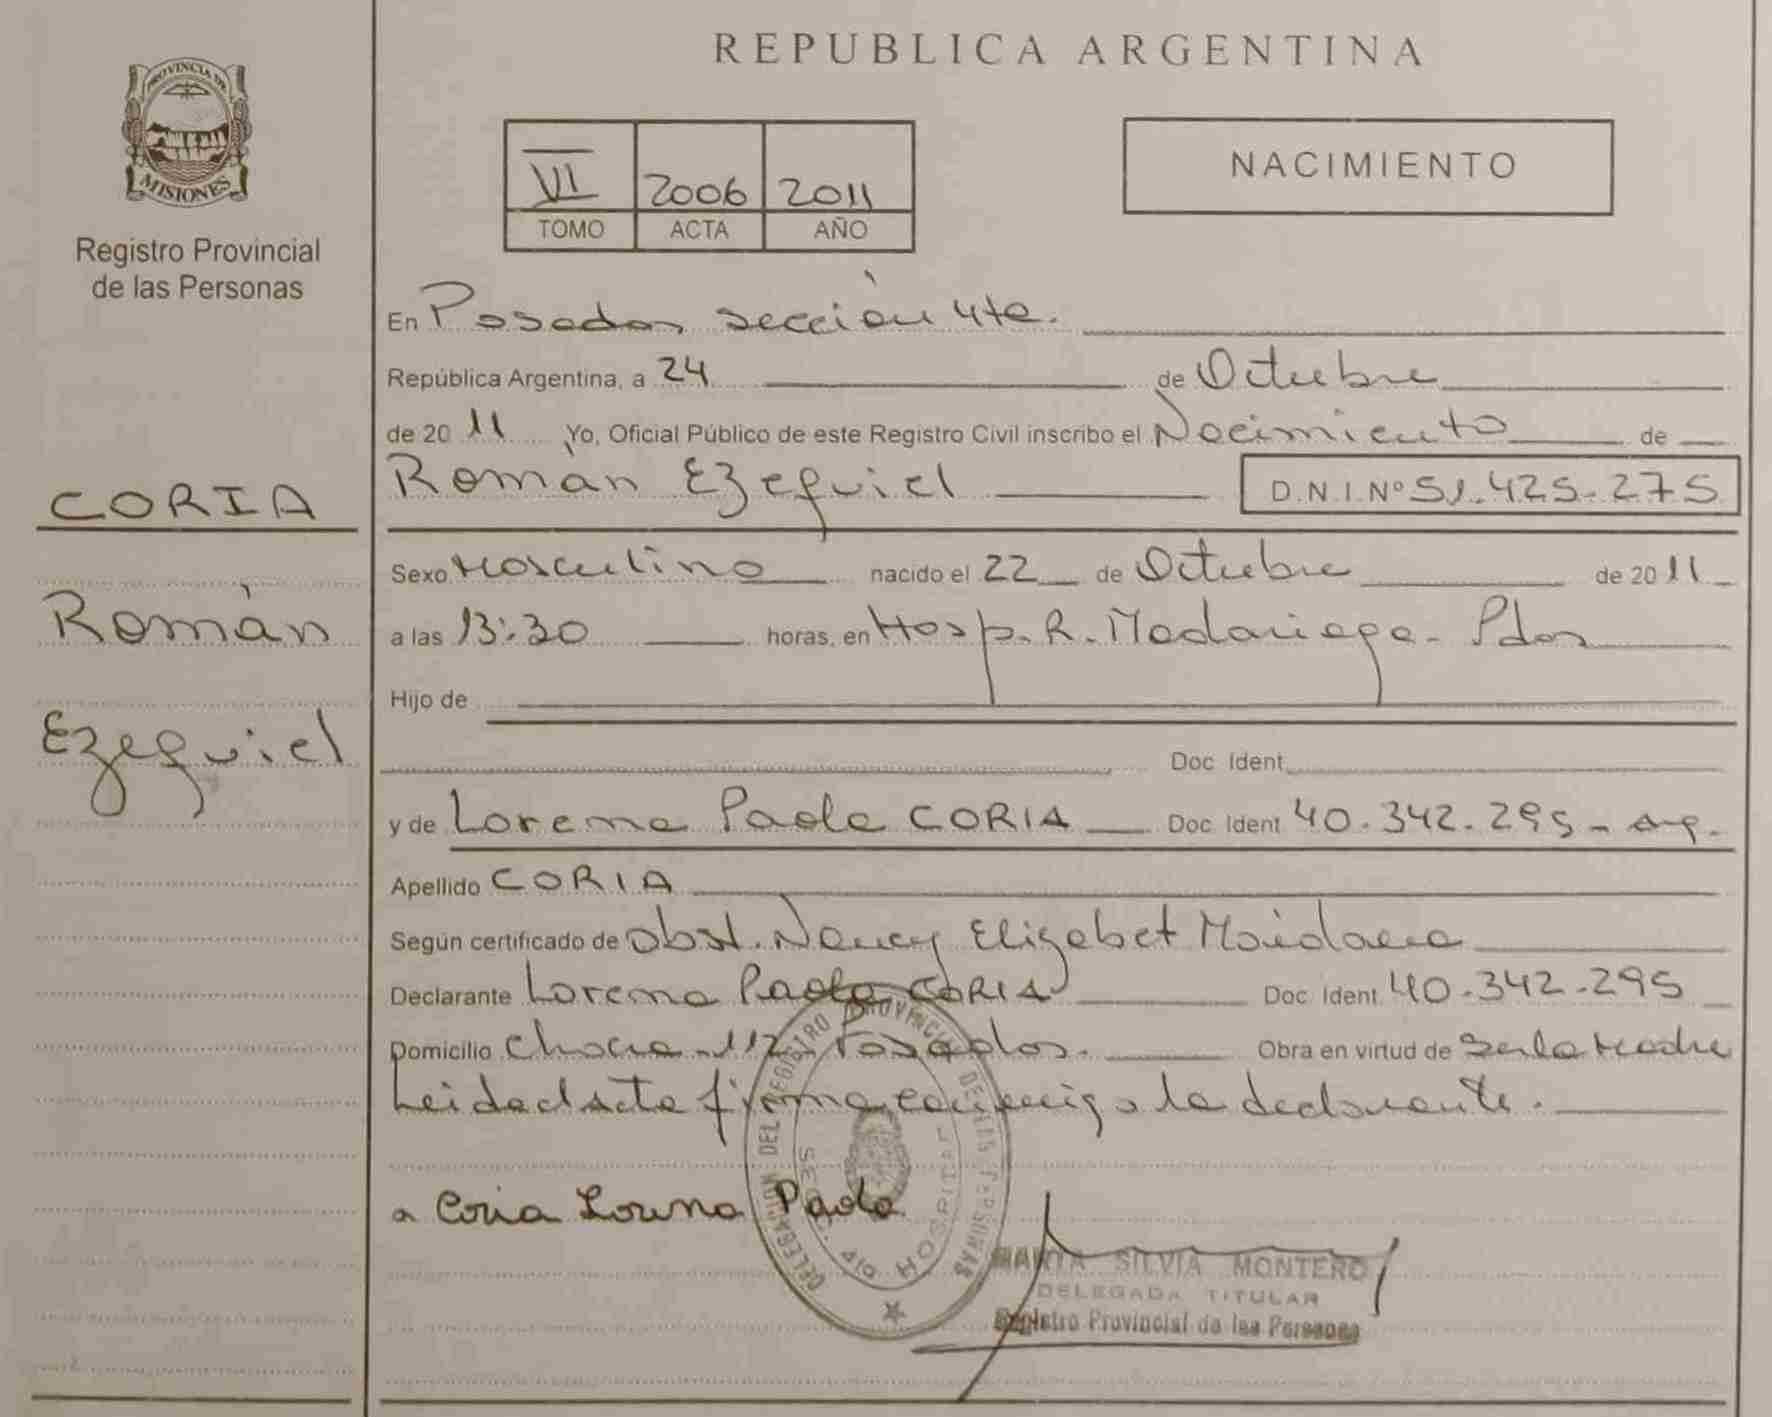 PROVINCIA DE
MISIONES
Registro Provincial
de las Personas
CORIA
Román
Ezequiel
REPUBLICA ARGENTINA
VI 2006 2011
TOMO ACTA AÑO
NACIMIENTO
En Posadas sección 4ta.
República Argentina, a 24 de Octubre
de 2011 Yo, Oficial Público de este Registro Civil inscribo el Nacimiento de
Roman Ezequiel D.N.I. Nº 51.425.275
Sexo Masculino nacido el 22 de Octubre de 2011
a las 13:30 horas, en Hosp. R. Madariaga - Pdas
Hijo de
Doc Ident
y de Lorena Paola CORIA Doc Ident 40.342.295 - Arg.
Apellido CORIA
Según certificado de Obst. Nancy Elizabet
Declarante Lorena Paola CORIA Doc Ident 40.342.295
Domicilio 112 Posadas. Obra en virtud de Ser la Madre
Leida el Acta firma conmigo la declarante.
Coria Lorena Paola
DELEGACION DEL REGISTRO PROVINCIAL DE LAS PERSONAS
SECC. 4ta HOSPITAL
MARTA SILVIA MONTERO
DELEGADA TITULAR
Registro Provincial de las Personas